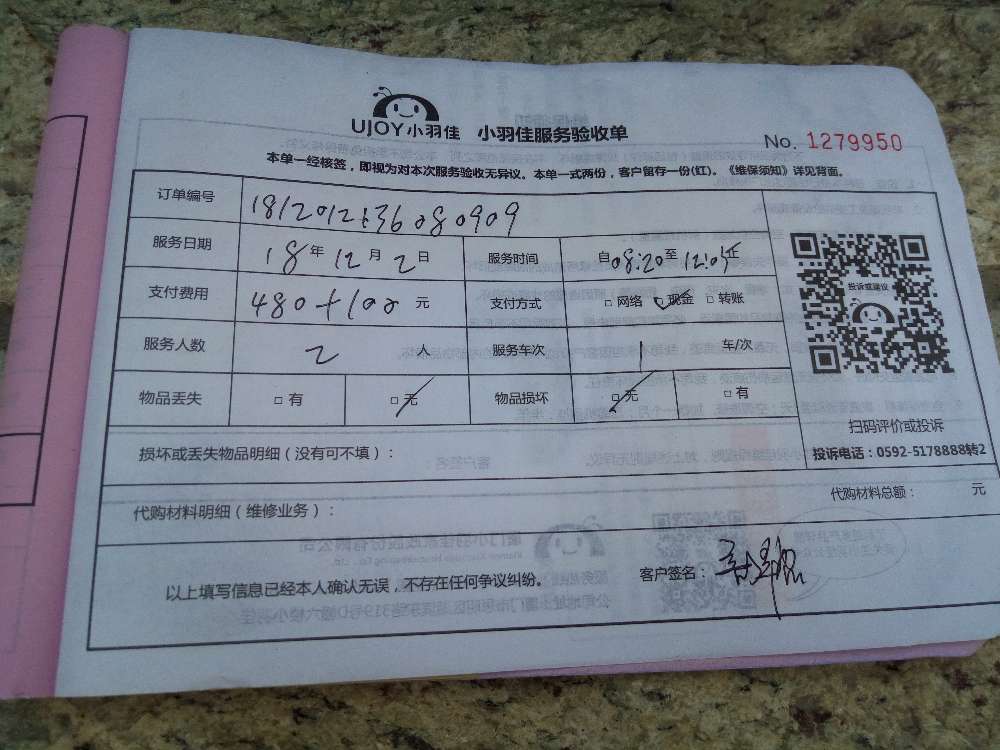 UJOY小羽佳 小羽佳服务验收单
No. 1279950
本单一经核签，即视为对本次服务验收无异议。本单一式两份，客户留存一份(红)。《维保须知》详见背面。
订单编号
服务日期 18年12月2日 服务时间 自08:20至12:05止
支付费用 480+100元 支付方式 □网络 ☑现金 □转账
服务人数 2人 服务车次 1车/次
物品丢失 □有 ☑无 物品损坏 ☑无 □有
投诉或建议
扫码评价或投诉
投诉电话：0592-5178888转2
损坏或丢失物品明细（没有可不填）：
代购材料总额： 元
代购材料明细（维修业务）：
以上填写信息已经本人确认无误，不存在任何争议纠纷。 客户签名：